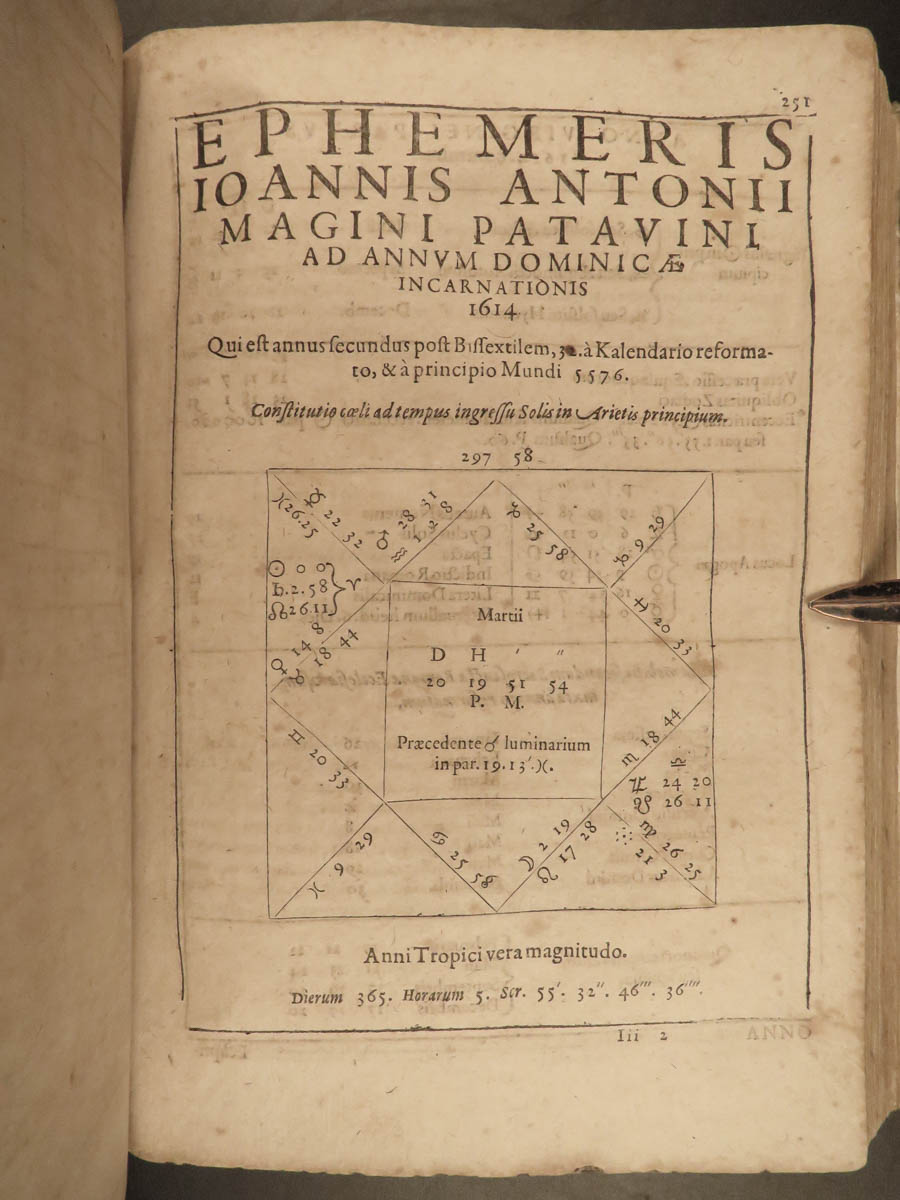 251
EPHEMERIS
IOANNIS ANTONII
MAGINI PATAVINI,
AD ANNVM DOMINICÆ
INCARNATIONIS
1614
Qui est annus secundus post Bissextilem, 32. à Kalendario reforma-
to, & à principio Mundi 5576.
Constitutio cœli ad tempus ingressu Solis in Arietis principium.
297 58
♓ 26.25
☿ 22 32
♂ 28 31
♒ 12 8
♑ 25 58
♑ 9 29
☉ 0 0
♄. 2. 58 } ♈
☊ 26. 11
♀ 14 8
♉ 18 44
♐ 20 33
Martii
D H ′ ″
20 19 51 54
P. M.
Præcedente ☌ luminarium
in par. 19. 13′. ♓.
♊ 20 33
♏ 18 44
♎
♃ 24 20
☋ 26 11
♍ 26 25
21 3
♋ 25 58
☽ 2 19
♌ 17 28
9 29
Anni Tropici vera magnitudo.
Dierum 365. Horarum 5. Scr. 55′. 32″. 46‴. 36⁗.
Iii 2